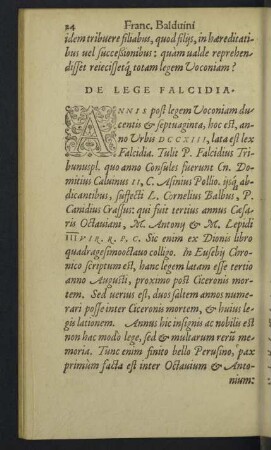 24 Franc. Balduini
idem tribuere filiabus, quod filijs, in hæreditati-
bus uel successionibus: quàm ualde reprehen-
disset reiecissetq́; totam legem Voconiam?
DE LEGE FALCIDIA.
ANNIS post legem Voconiam du-
centis & septuaginta, hoc est, an-
no Vrbis DCCXIII, lata est lex
Falcidia. Tulit P. Falcidius Tri-
bunuspl. quo anno Consules fuerunt Cn. Do-
mitius Caluinus II, C. Asinius Pollio. ijsq́; ab-
dicantibus, suffecti L. Cornelius Balbus, P.
Canidius Crassus: qui fuit tertius annus Cæsa-
ris Octauiani, M. Antonij & M. Lepidi
IIIVIR. R. P. C. Sic enim ex Dionis libro
quadragesimooctauo colligo. In Eusebij Chro-
nico scriptum est, hanc legem latam esse tertio
anno Augusti, proximo post Ciceronis mor-
tem. Sed uerius est, duos saltem annos nume-
rari posse inter Ciceronis mortem, & huius le-
gis lationem. Annus hic insignis ac nobilis est
non hac modo lege, sed & multarum rerū me-
moria. Tunc enim finito bello Perusino, pax
primùm facta est inter Octauium & Anto-
nium: